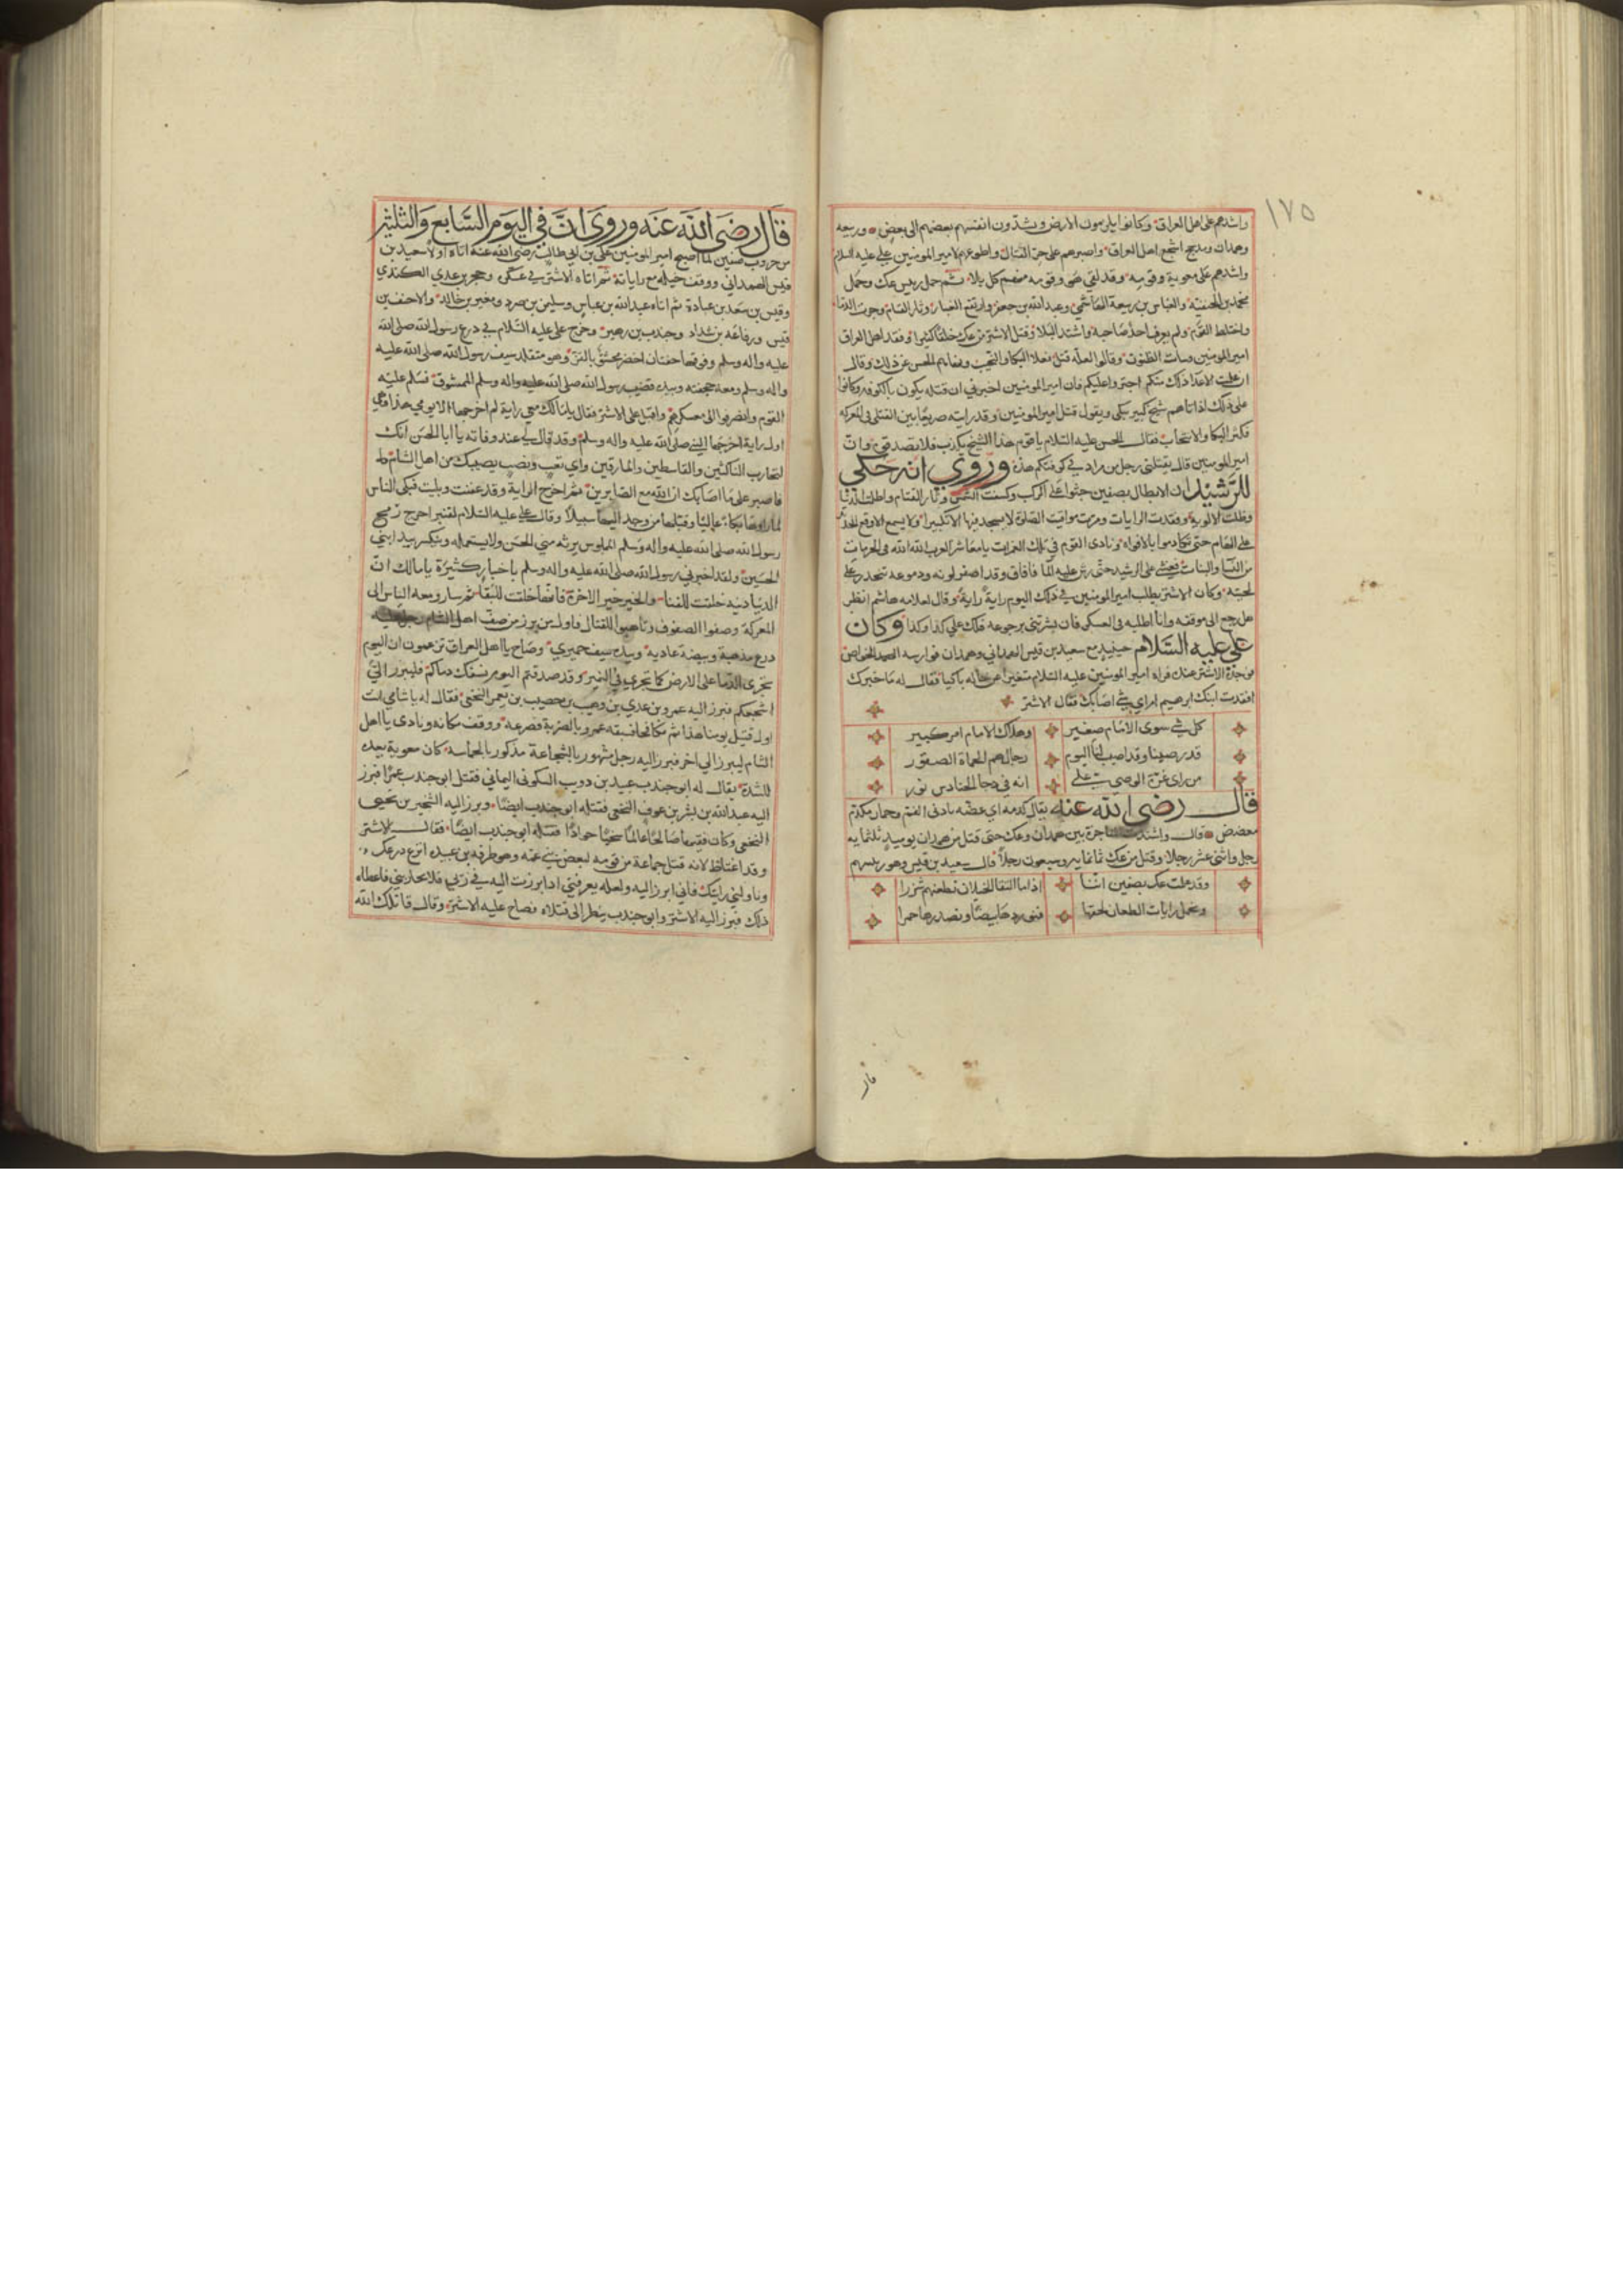 ١٧٥
واشدهم على اهل العراق وكانوا يلزمون الارض ويشدون انفسهم بعضهم الى بعض وربيعه
وهمدان ومذحج اشجع اهل العراق واصبرهم على حر القتال واطوعهم لامير المومنين على عليه السلام
واشدهم على معوية وقومه وقد لقى هو وقومه منهم كل بلا ثم حمل رييس عك وحمل
محمد بن الحنفية والعباس بن ربيعة الهاشمي وعبد الله بن جعفر وارتفع الغبار وثار القتام وجرت الدما
واختلط القوم ولم يعرف احد صاحبه واشتد البلا وقتل الاشتر من عك خلقا كثيرا وفقد اهل العراق
امير المومنين وسات الظنون وقالوا لعله قتل فعلا البكا والنحيب ونهاهم الحسن عن ذلك وقال
ان علمت الاعدا ذلك منكم اجترواعليكم فان امير المومنين اخبرني ان قتله يكون بالكوفه وكانوا
على ذلك اذ اتاهم شيخ كبير يبكى ويقول قتل امير المومنين وقد رايته صريعا بين القتلى فى المعركه
فكثر البكا والانتحاب فقال الحسن عليه السلام ياقوم هذا الشيخ يكذب فلا تصدقوه وان
امير المومنين قال يقتلني رجل من مراد في كوفتكم هذه وروي انه حكي
للرشيد ان الابطال بصفين جثوا على الركب وكسفت الشمس وثار القتام واظلمت الدنيا
وظلت الالويه وفقدت الرايات ومرت مواقيت الصلوة لا يسجد فيها الا تكبيرا ولا يسمع الا وقع الحديد
على الهام حتى تكادموا بالافواه ونادى القوم في تلك الغمرات يا معاشر العرب الله الله فى الحرمات
من النسا والبنات فغشى على الرشيد حتى رش عليه الما فافاق وقد اصفر لونه ودموعه تتحدر على
لحيته وكان الاشتر يطلب امير المومنين في ذلك اليوم راية راية وقال لغلامه هاشم انظر
هل رجع الى موقفه وانا اطلبه فى العسكر فان بشرتنى برجوعه فلك على كذا وكذا وكان
علي عليه السلام حينيذ مع سعيد بن قيس الهمداني وهمدان فوارسه
الاشتر هناك فراه امير المومنين عليه السلام متغيرا عن حاله باكيا فقال له ما خبرك
افقدت ابنك ابرهيم ام اي شي اصابك فقال الاشتر
كل شي سوى الامام صغير وهلاك الامام امر كبير
قد رضينا وقد اصيب لنا اليوم رجال هم الحماة الصقور
من راى غرة الوصي علي انه في دجا الحنادس نور
قال رضى الله عنه يقال كدمه اي عضه بادنى الفم وحمار مكدم
معضض قال واشتدت بين همدان وعك حتى قتل من همدان يوميذ ثلثمايه
رجل واثنى عشر رجلا وقتل من عك ثمانمايه وسبعون رجلا فقال سعيد بن قيس وهو رييسهم
وقد علمت عك بصفين اننا اذا ما التقا الخيلان نطعنهم شزرا
ونحمل رايات الطعان لحقها فنوردها بيضا ونصدرها حمرا
قال
قال رضى الله عنه وروى ان في اليوم السابع والثلثين
من حروب صفين لما اصبح امير المومنين على بن ابي طالب رضى الله عنه اتاه اولا سعيد بن
قيس الهمداني ووقف خيله مع راياته ثم اتاه الاشتر في عسكره وحجر بن عدي الكندي
وقيس بن سعد بن عبادة ثم اتاه عبد الله بن عباس وسليمن بن صرد ومغير بن خالد والاحنف بن
قيس ورفاعه بن شداد وجندب بن زهير وخرج على عليه السلام في درع رسول الله صلى الله
عليه واله وسلم وفوقها خفتان اخضر محشو بالقز وهو متقلد سيف رسول الله صلى الله عليه
واله وسلم ومعه حجفته وبيده قضيب رسول الله صلى الله عليه واله وسلم الممشوق فسلم عليه
القوم وانصرفوا الى معسكرهم واقبل على الاشتر فقال يامالك معي راية لم اخرجها الا يومي هذا وهى
اول راية اخرجها النبي صلى الله عليه واله وسلم وقد قال لي عند وفاته يا ابا الحسن انك
لتحارب الناكثين والقاسطين والمارقين واي تعب ونصب يصيبك من اهل الشام
فاصبر على ما اصابك ان الله مع الصابرين ثم اخرج الراية وقد عفنت وبليت فبكى الناس
لما راوها بكاء عاليا وقبلها من وجد اليها سبيلا وقال على عليه السلام لقنبر اخرج رمح
رسول الله صلى الله عليه واله وسلم الملموس يرثه مني الحسن ولا يستعمله وينكسر بيد ابني
الحسين ولقد اخبرني رسول الله صلى الله عليه واله وسلم باخبار كثيرة يامالك ان
الدنيا دنيه خلقت للفنا والخير خير الاخرة فانها خلقت للبقا ثم سار ومعه الناس الى
المعركة وصفوا الصفوف وتاهبوا للقتال فاول من برز من صف اهل الشام رجل عليه
درع مذهبة وبيضة عاديه وبيده سيف حميري وصاح يا اهل العراق تزعمون ان اليوم
تجرى الدما على الارض كما تجرى في النهر وقد صدقتم اليوم نسفك دماكم فليبرز الي
اشجعكم فبرز اليه عمرو بن عدي بن وهب بن خصيب بن يعمر النخعي فقال له ياشامي انت
اول قتيل يومنا هذا ثم تكافحا فسبقه عمرو بالضربة فصرعه ووقف مكانه ونادى يا اهل
الشام ليبرز الي اخر فبرز اليه رجل مشهور بالشجاعة مذكور بالحماسة كان معوية يعده
للشدة يقال له ابو جندب عبيد بن دويب السكونى اليماني فقتل ابو جندب عمرا فبرز
اليه عبد الله بن بشر بن عوف النخعي فقتله ابو جندب ايضا وبرز اليه النخير بن يحيى
النخعي وكان فقيها صالحا عالما سخيا جوادا فقتله ابو جندب ايضا فقال الاشتر
وقد اغتاظ لانه قتل جماعة من قومه لبعض بني عمه وهو طرفه بن عبيده انزع درعك
وناولني رايتك فاني ابرز اليه ولعله يعرفني اذا برزت اليه في زيي فلا يحاربني فاعطاه
ذلك فبرز اليه الاشتر وابو جندب ينظر الى قتلاه فصاح عليه الاشتر وقال قاتلك الله